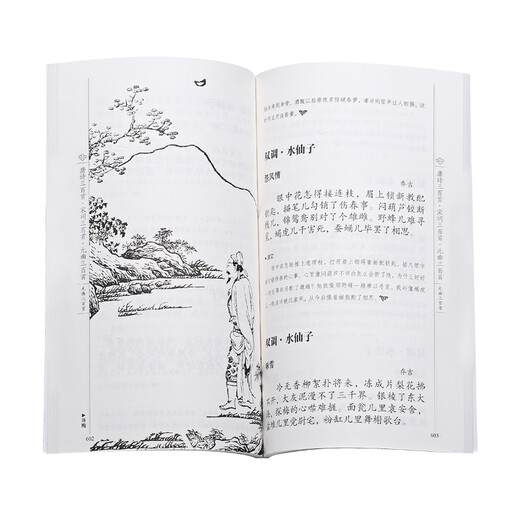 唐诗三百首·宋词三百首·元曲三百首
元曲三百首
寻梅
602
603
双调·水仙子
怨风情
乔吉
眼中花怎得接连枝，眉上锁新教配
钥匙，描笔儿勾销了伤春事。闷葫芦铰断
线儿，锦鸳鸯别对了个雄雌。野蜂儿难寻
觅，蝎虎儿干害死，蚕蛹儿毕罢了相思。
双调·水仙子
咏雪
乔吉
冷无香柳絮扑将来，冻成片梨花拂
不开，大灰泥漫不了三千界。银棱了东大
海，探梅的心噤难捱。面瓮儿里袁安舍，
盐堆儿里党尉宅，粉缸儿里舞榭歌台。